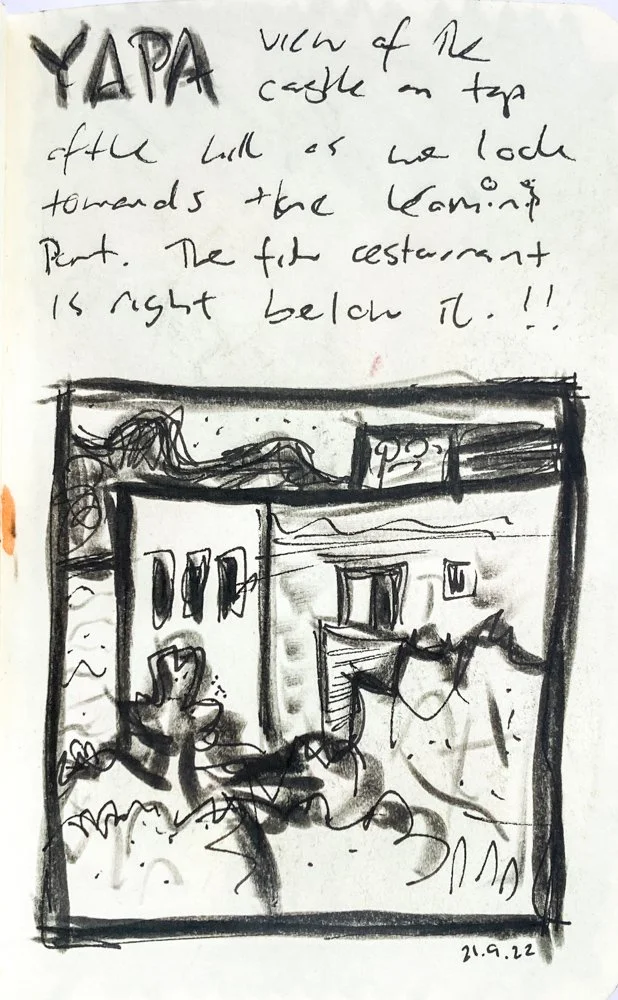 YAPA view of the
castle on top
of the hill as we look
towards the Kamini
Port. The fish restaurant
is right below it. !!
21.9.22